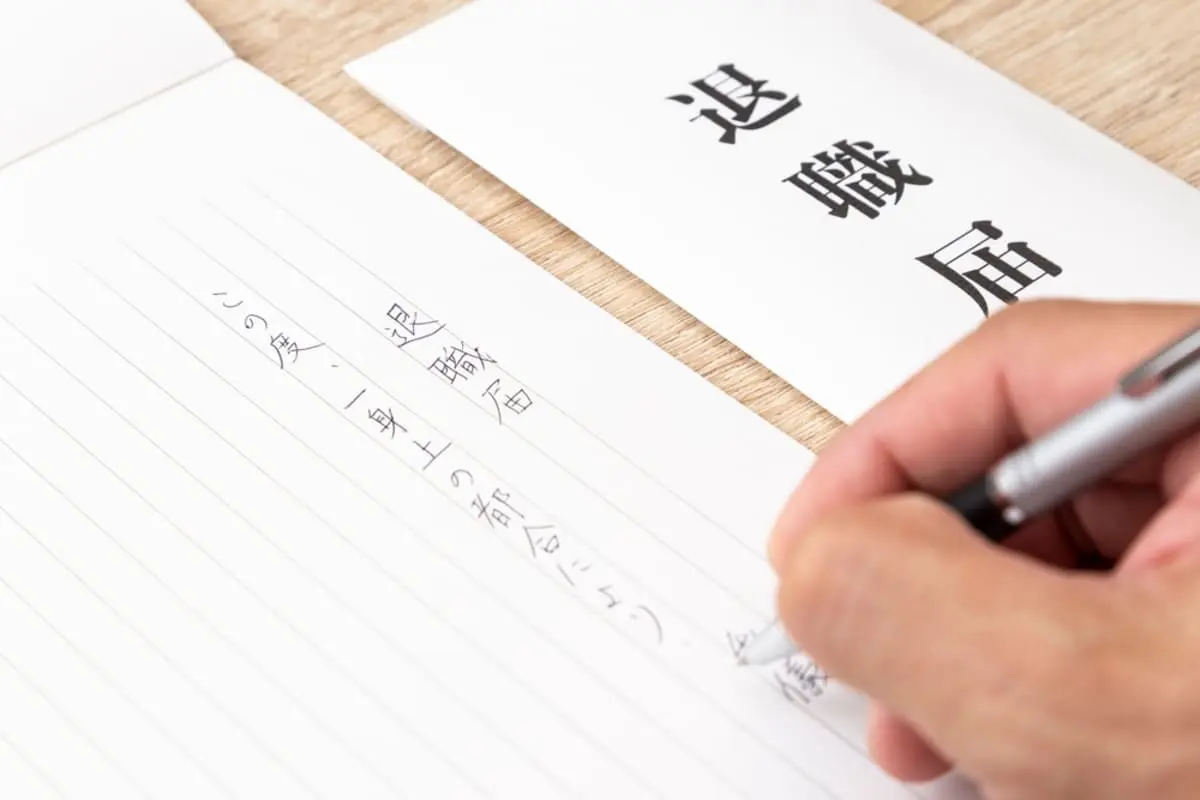 退職届
退職届
私儀
この度、一身上の都合により、